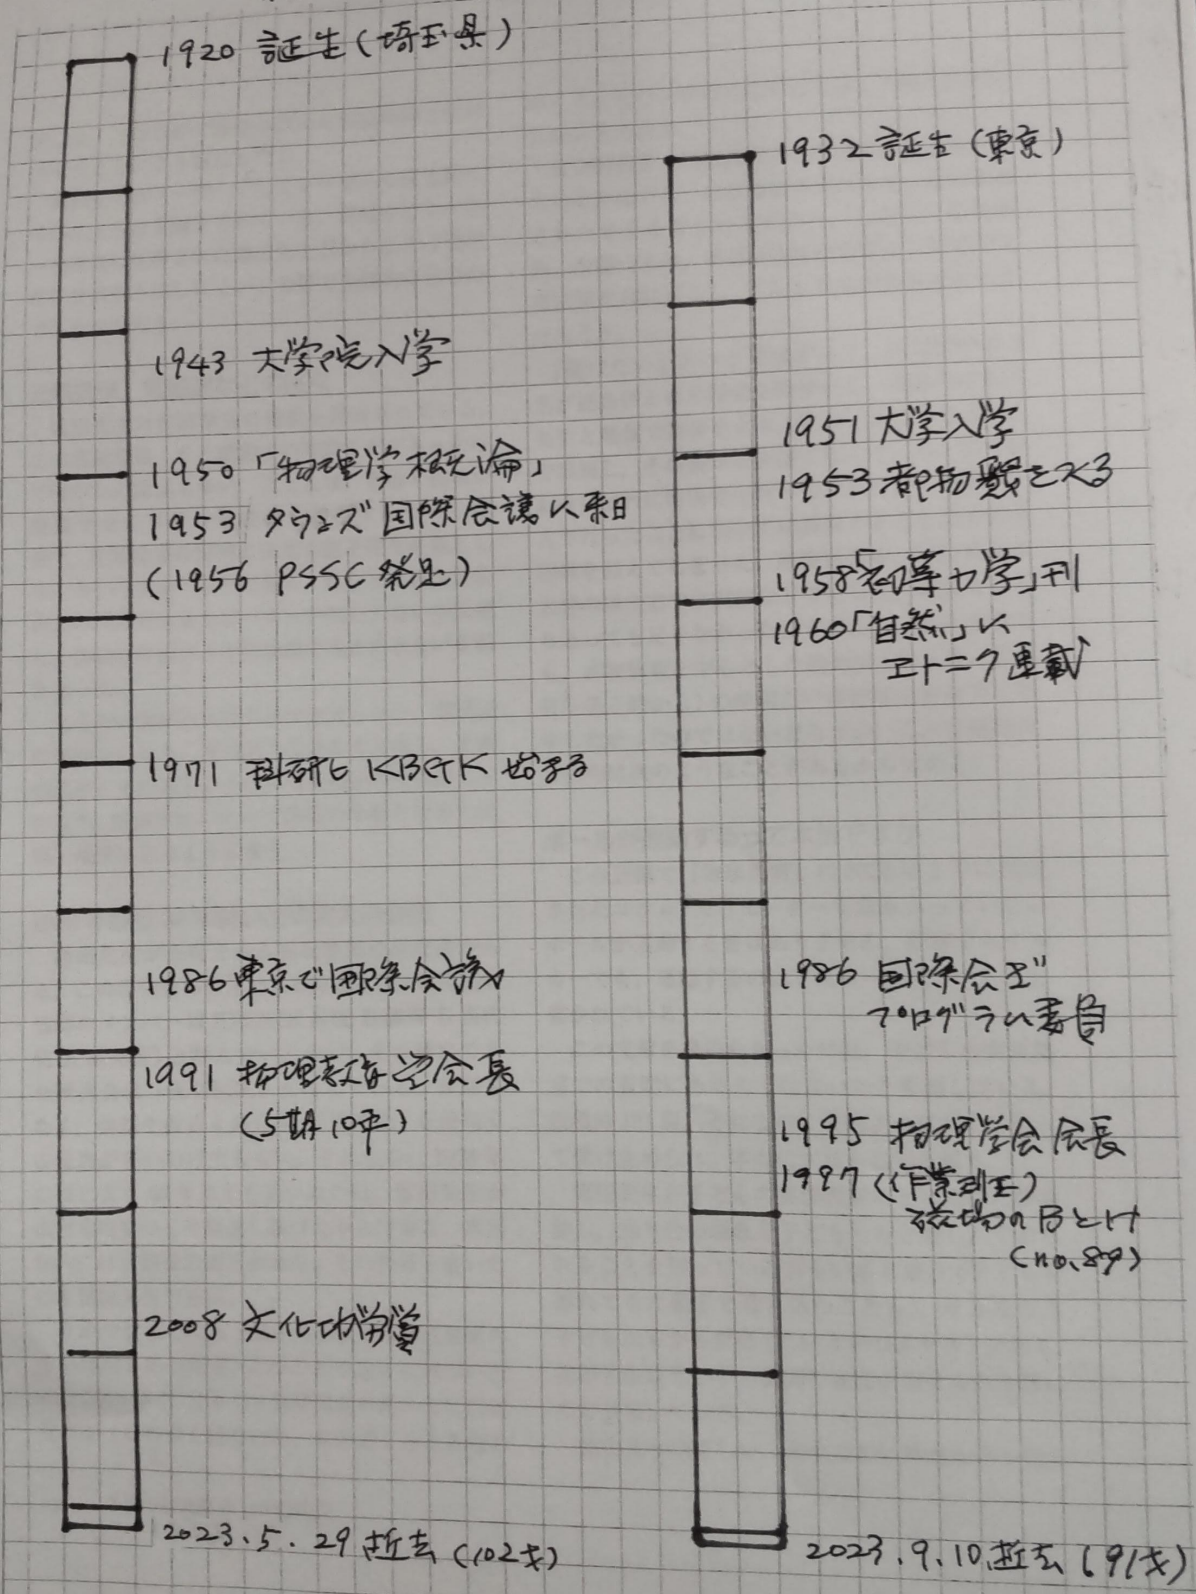 1920 誕生(埼玉県)
1943 大学院入学
1950「物理学概論」
1953 タウンズ 国際会議に来日
(1956 PSSC 発足)
1971 科研セ KBGK 始まる
1986 東京で国際会議
1991 物理教育学会長
(5期10年)
2008 文化功労賞
2023.5.29 逝去(102才)
1932 誕生(東京)
1951 大学入学
1953 都物懇をつくる
1958「初等力学」刊
1960「自然」に
エトニク連載
1986 国際会ギ
プログラム委員
1995 物理学会会長
1997 (作業班王)
磁場のBとH
(no.89)
2023.9.10.逝去(91才)